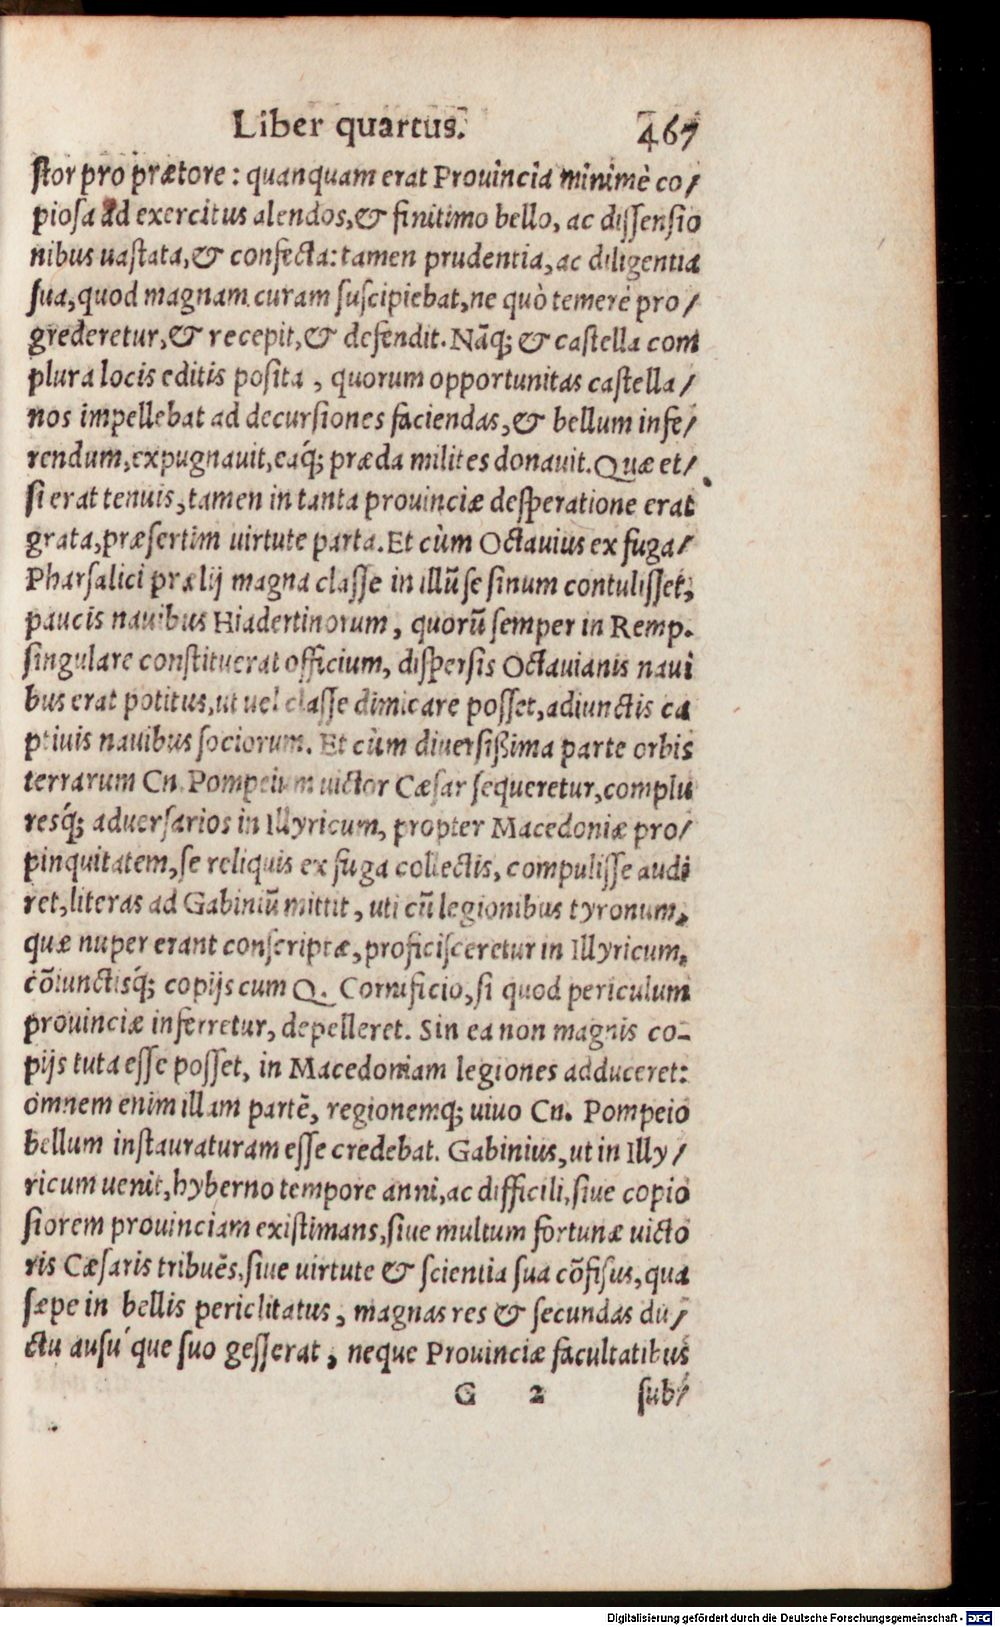 Liber quartus. 467
ſtor pro prætore: quanquam erat Prouincia minimè co/
pioſa ad exercitus alendos, & finitimo bello, ac diſſenſio
nibus uaſtata, & confecta: tamen prudentia, ac diligentia
ſua, quod magnam curam ſuſcipiebat, ne quò temerè pro/
grederetur, & recepit, & defendit. Nãq; & caſtella com
plura locis editis poſita, quorum opportunitas caſtella/
nos impellebat ad decurſiones faciendas, & bellum infe/
rendum, expugnauit, eaq́; præda milites donauit. Quæ et/
ſi erat tenuis, tamen in tanta prouinciæ deſperatione erat
grata, præſertim uirtute parta. Et cùm Octauius ex fuga/
Pharſalici prælij magna claſſe in illũ ſe ſinum contuliſſet;
paucis nauibus Hiadertinorum, quorũ ſemper in Remp.
ſingulare conſtituerat officium, diſperſis Octauianis naui
bus erat potitus, ut uel claſſe dimicare poſſet, adiunctis ca
ptiuis nauibus ſociorum. Et cùm diuerſißima parte orbis
terrarum Cn. Pompeium uictor Cæſar ſequeretur, complu
resq́; aduerſarios in Illyricum, propter Macedoniæ pro/
pinquitatem, ſe reliquis ex fuga collectis, compuliſſe audi
ret, literas ad Gabiniũ mittit, uti cũ legionibus tyronum,
quæ nuper erant conſcriptæ, proficiſceretur in Illyricum,
cõiunctisq́; copijs cum Q. Cornificio, ſi quod periculum
prouinciæ inferretur, depelleret. Sin ea non magnis co-
pijs tuta eſſe poſſet, in Macedoniam legiones adduceret:
omnem enim illam partẽ, regionemq; uiuo Cn. Pompeio
bellum inſtauraturam eſſe credebat. Gabinius, ut in Illy/
ricum uenit, hyberno tempore anni, ac difficili, ſiue copio
ſiorem prouinciam exiſtimans, ſiue multum fortunæ uicto
ris Cæſaris tribuẽs, ſiue uirtute & ſcientia ſua cõfiſus, qua
ſæpe in bellis periclitatus, magnas res & ſecundas du/
ctu auſu´ que ſuo geſſerat, neque Prouinciæ facultatibus
G 2 ſub/
Digitalisierung gefördert durch die Deutsche Forschungsgemeinschaft - DFG